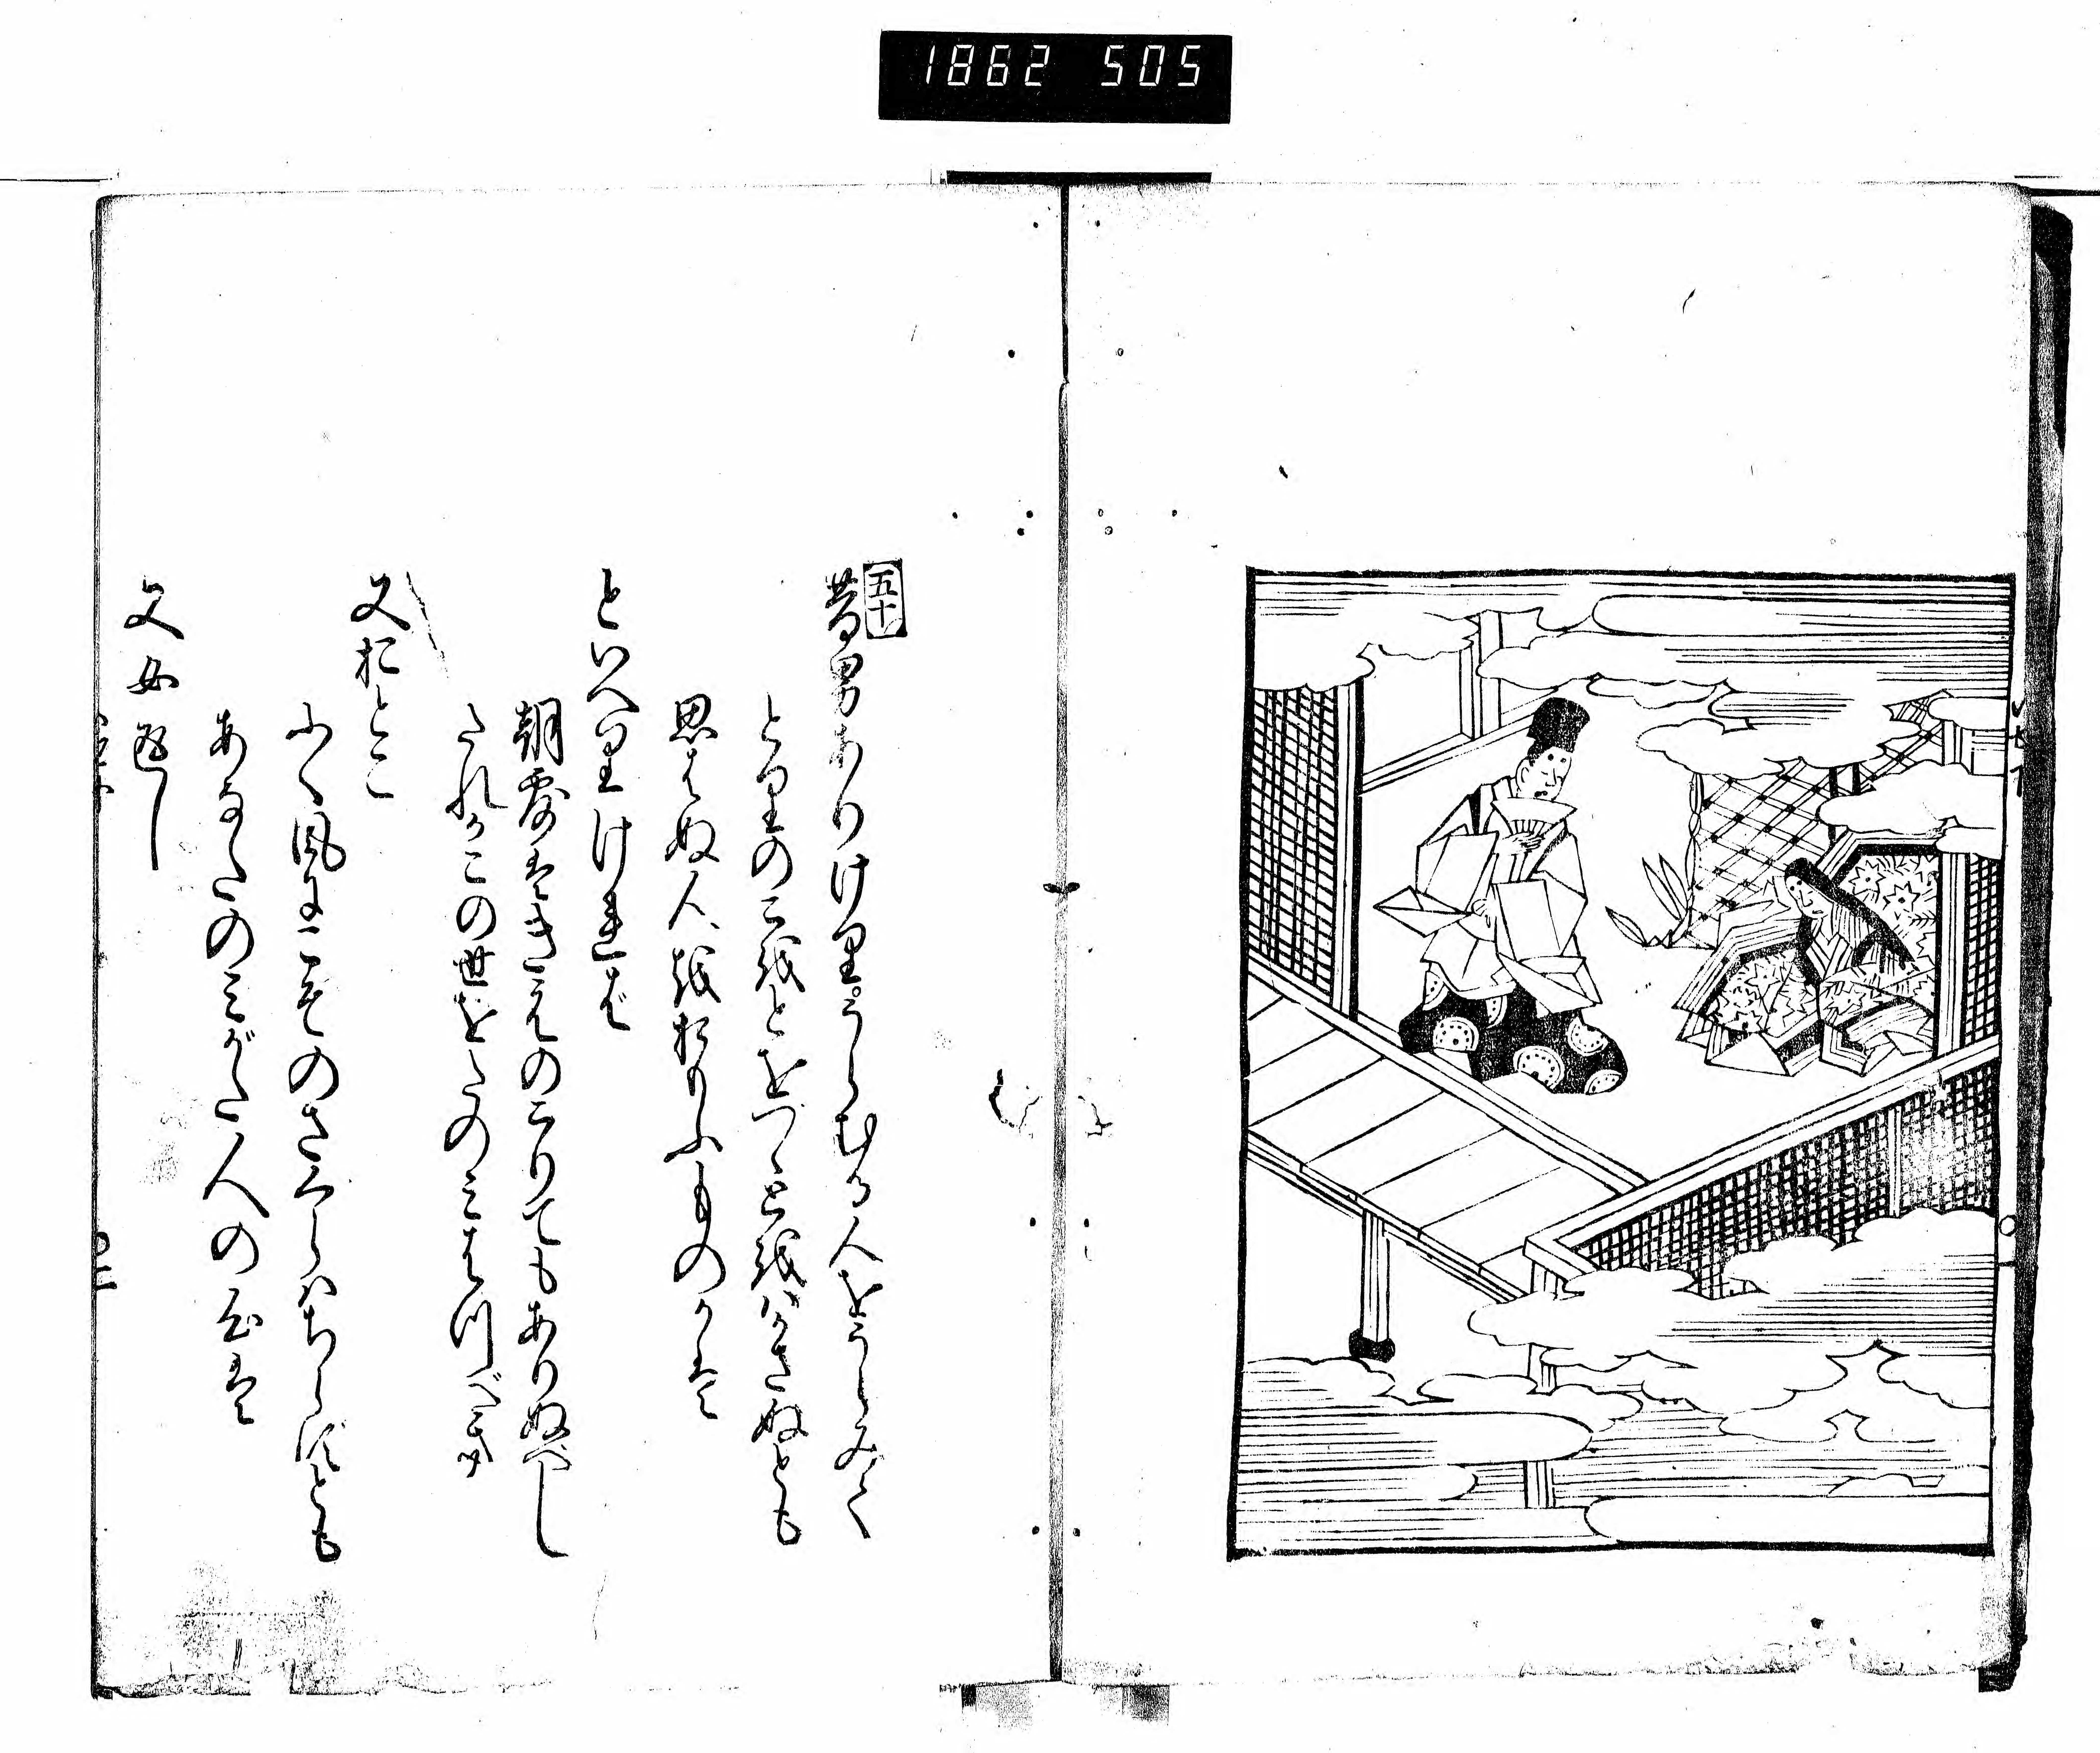 1862 505
五十
昔男ありけり。うらむる人をうらみて
とりのこをとをづゝとをはかさぬとも
思はぬ人をおもふものかは
といへりけれは
朝露はきえのこりてもありぬべし
たれかこの世をたのみはつべき
又おとこ
ふく風にこぞのさくらはちらずとも
あなたのみがた人の心は
又女返し